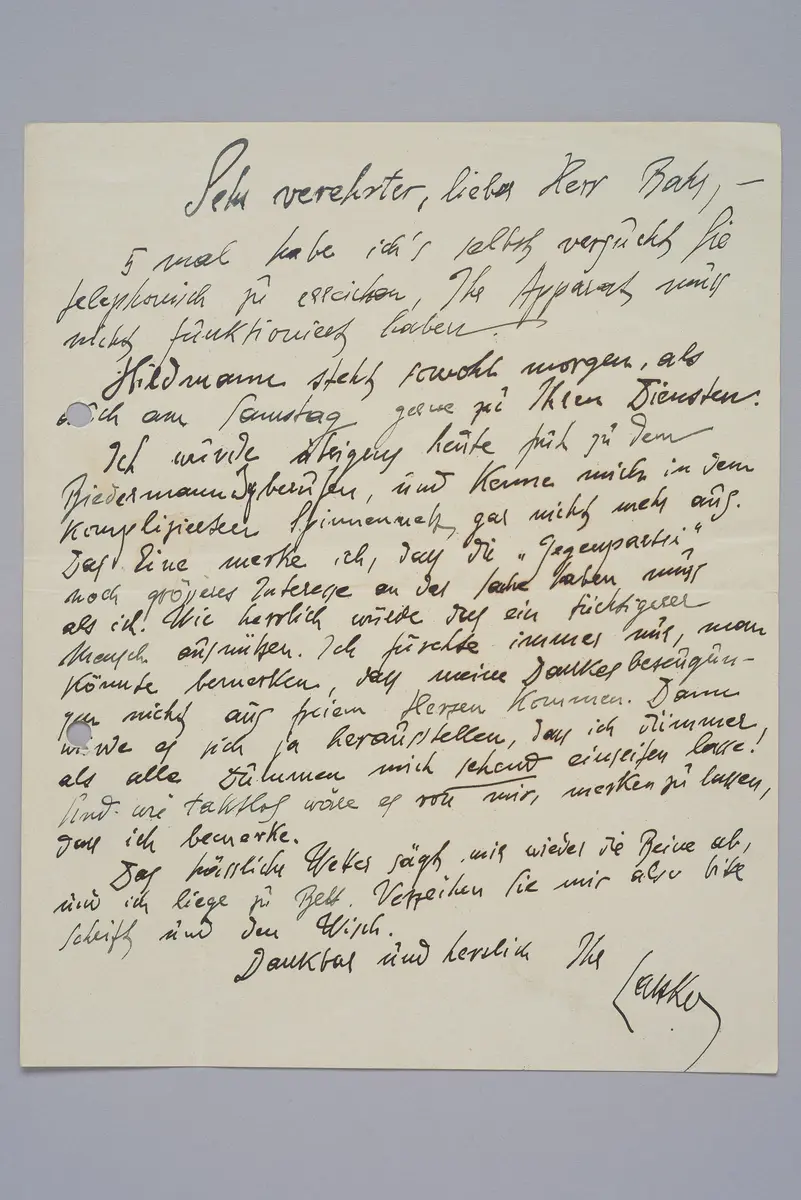 Sehr verehrter, lieber Herr Bahr, –
5 mal habe ich's selbst versucht Sie
telephonisch zu erreichen, Ihr Apparat muss
nicht funktioniert haben.
Hildmann steht sowohl morgen, als
auch am Samstag gerne zu Ihren Diensten.
Ich wurde übrigens heute früh zu dem
Biedermann berufen, und kenne mich in dem
komplizierten Spinnennetz gar nicht mehr aus.
Das Eine merke ich, dass die „Gegenpartei"
noch grösseres Interesse an der Sache haben muss
als ich! Wie herrlich würde das ein tüchtigerer
Mensch ausnützen. Ich fürchte immer nur, man
könnte bemerken, dass meine Dankesbezeugun-
gen nicht aus freiem Herzen kommen. Dann
würde es sich ja herausstellen, dass ich dümmer,
als alle Dummen mich einseifen lasse!
Und wie taktlos wäre es von mir, merken zu lassen,
dass ich bemerke.
Das hässliche Wetter sägt mir wieder die Beine ab,
und ich liege zu Bett. Verzeihen Sie mir also bitte
Schrift und den Wisch.
Dankbar und herzlich Ihr
Latzko